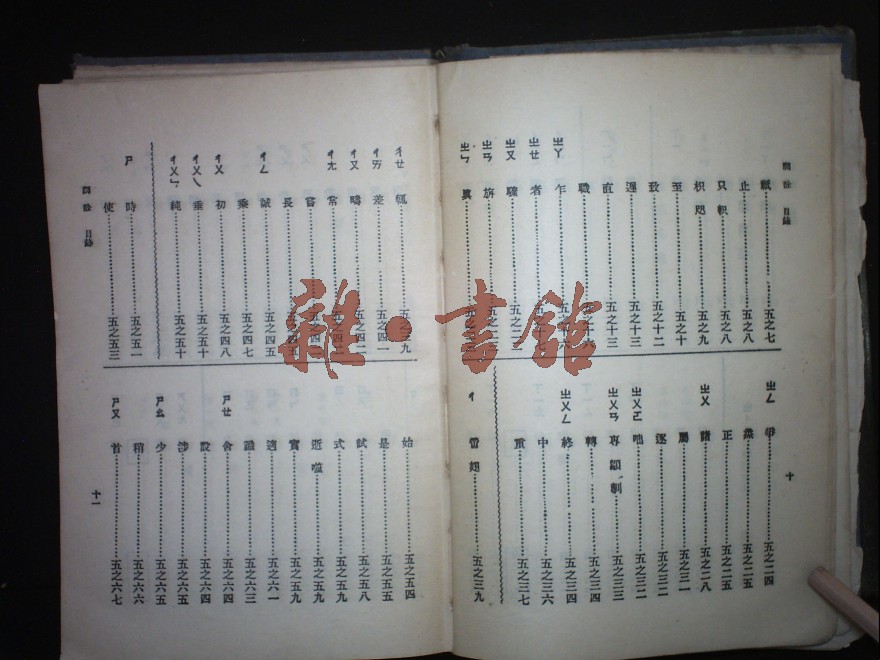 詞詮 目錄
祇⋯⋯五之七
止⋯⋯五之八
只 軹⋯⋯五之八
枳 咫⋯⋯五之九
至⋯⋯五之十
致⋯⋯五之十二
遲⋯⋯五之十三
直⋯⋯五之十三
職⋯⋯
ㄓㄚ 乍⋯⋯
ㄓㄜ 者⋯⋯
ㄓㄡ 驟⋯⋯五之二二
ㄓㄢ 旃⋯⋯
ㄓㄣ 眞⋯⋯
ㄓㄥ 爭⋯⋯五之二四
烝⋯⋯五之二五
正⋯⋯五之二五
ㄓㄨ 諸⋯⋯五之二八
屬⋯⋯五之三一
逐⋯⋯五之三二
ㄓㄨㄛ 咄⋯⋯五之三二
ㄓㄨㄢ 專 顓 剸⋯⋯五之三三
轉⋯⋯五之三四
ㄓㄨㄥ 終⋯⋯五之三四
中⋯⋯五之三六
重⋯⋯五之三七
ㄔ 啻 翅⋯⋯五之三九
十
ㄔㄜ 輒⋯⋯五之三九
ㄔㄞ 差⋯⋯五之四一
ㄔㄡ 疇⋯⋯五之四二
ㄔㄤ 常⋯⋯
嘗⋯⋯
長⋯⋯
ㄔㄥ 誠⋯⋯五之四五
乘⋯⋯五之四七
ㄔㄨ 初⋯⋯五之四八
ㄔㄨㄟ 垂⋯⋯五之五十
ㄔㄨㄣ 純⋯⋯五之五十
ㄕ 時⋯⋯五之五一
使⋯⋯五之五三
始⋯⋯五之五四
是⋯⋯五之五五
試⋯⋯五之五八
式⋯⋯五之五九
逝 噬⋯⋯五之五九
實⋯⋯五之五九
適⋯⋯五之六一
識⋯⋯五之六三
ㄕㄜ 舍⋯⋯五之六四
設⋯⋯五之六四
涉⋯⋯五之六五
ㄕㄠ 少⋯⋯五之六五
稍⋯⋯五之六六
ㄕㄡ 首⋯⋯五之六七
詞詮 目錄
十一
雜·書館